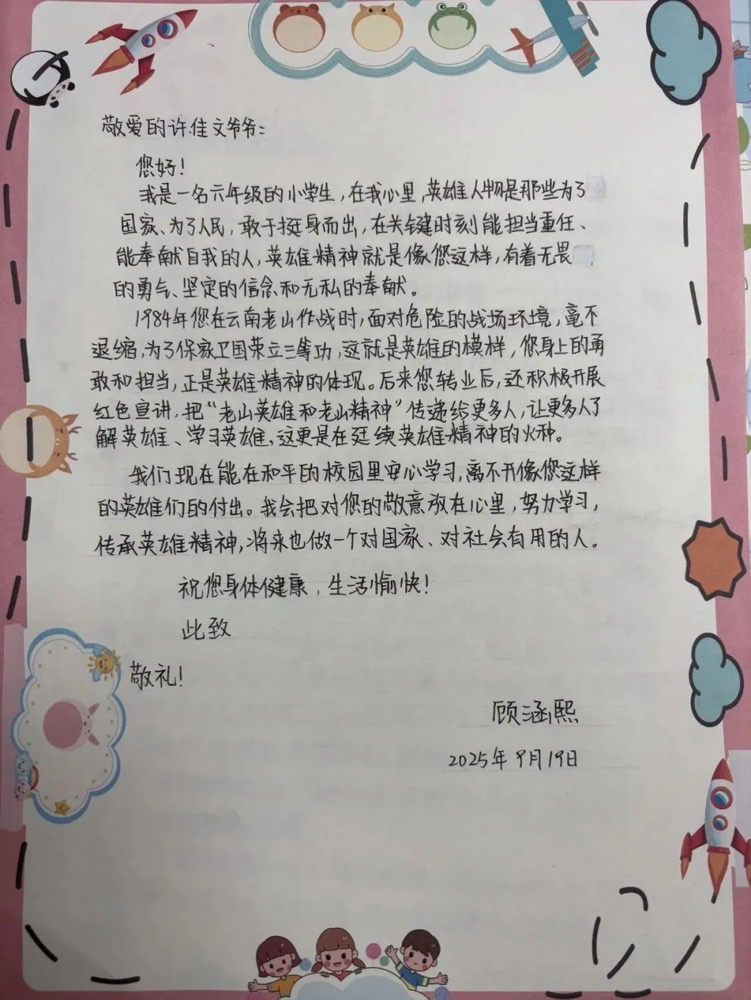 敬爱的许佳文爷爷:
您好!
我是一名六年级的小学生,在我心里,英雄人物是那些为了
国家、为了人民,敢于挺身而出,在关键时刻能担当重任、
能奉献自我的人,英雄精神就是像您这样,有着无畏
的勇气、坚定的信念和无私的奉献。
1984年您在云南老山作战时,面对危险的战场环境,毫不
退缩,为了保家卫国荣立三等功,这就是英雄的模样,您身上的勇
敢和担当,正是英雄精神的体现。后来您转业后,还积极开展
红色宣讲,把“老山英雄和老山精神”传递给更多人,让更多人了
解英雄、学习英雄,这更是在延续英雄精神的火种。
我们现在能在和平的校园里安心学习,离不开像您这样
的英雄们的付出。我会把对您的敬意放在心里,努力学习,
传承英雄精神,将来也做一个对国家、对社会有用的人。
祝您身体健康,生活愉快!
此致
敬礼!
顾涵熙
2025年9月19日